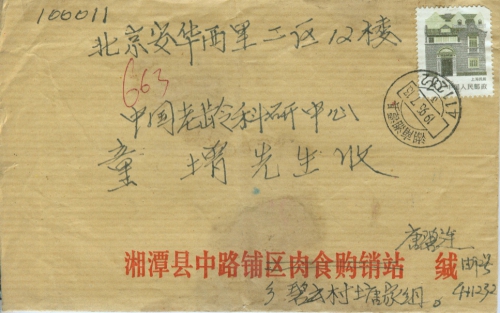 100011
北京安华西里二区12楼
663
中国老龄科研中心
童 先生 收
上海民居
中国人民邮政
411232
1995.7.
湘潭县中路铺区肉食购销站 缄
邮咨
乡碧云村土唐家组。411232